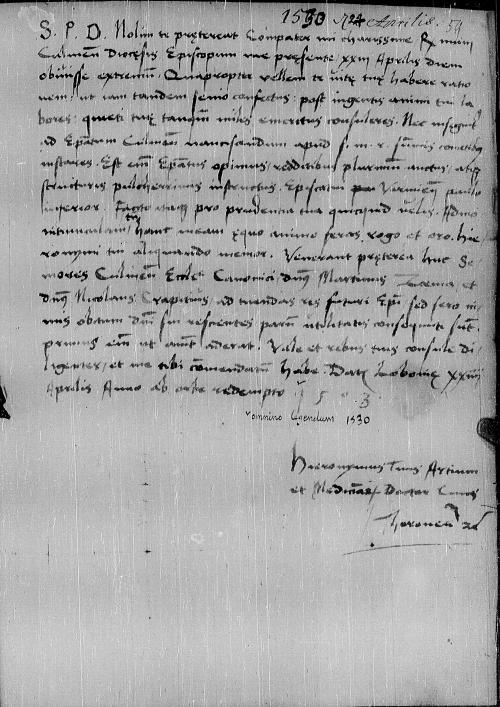 1530 24 Aprilis. 54
S. P. D. Nolim te prętereat Compater mi charissime Rx mum
Culmeñ Diocęsis Episcopum me pręsente xxiij Aprilis diem
obiuisse extremũ. Quapropter vellem te vitę tuę habere ratio
nem, ut iam tandem senio confectus, post ingentis animi tui la
bores, quieti tuę tanq̃m miles emeritus consuleres. Nec
ad Ep̃atum Culmeñ nanciscendum apud s. m. r.
instares. Est eim̃ Ep̃atus opimus, redditibus plurimũ auctus, atq
structuris pulcherrimis instructus, Episcatui Varmieñ paulo
inferior. Facito itaq pro prudentia tua quicquid velis. Admo
nitiunculam hanc meam ęquo animo feras, rogo et oro, hie
ronymi tui aliquando memor. Venerant pręterea huc Se
niores Culmeñ Eccłę Canonici, dnq Martinus et
dnq Nicolaus Crapitius, ad tuendas res futuri Ep̃i sed sero ni
mis obitum dñi sui rescientes parũ utilitatis consequuti sũt.
primus eim̃ ut aiunt aderat. Vale et rebus tuis consule di
ligenter, et me tibi com̃endatum habe. Datę Lobovię xxiiij
Aprilis Anno ab orbe redempto
omnino legendum 1530
Hieronymus Tuus Artium
et Medicinę Doctor
Thoroneñ